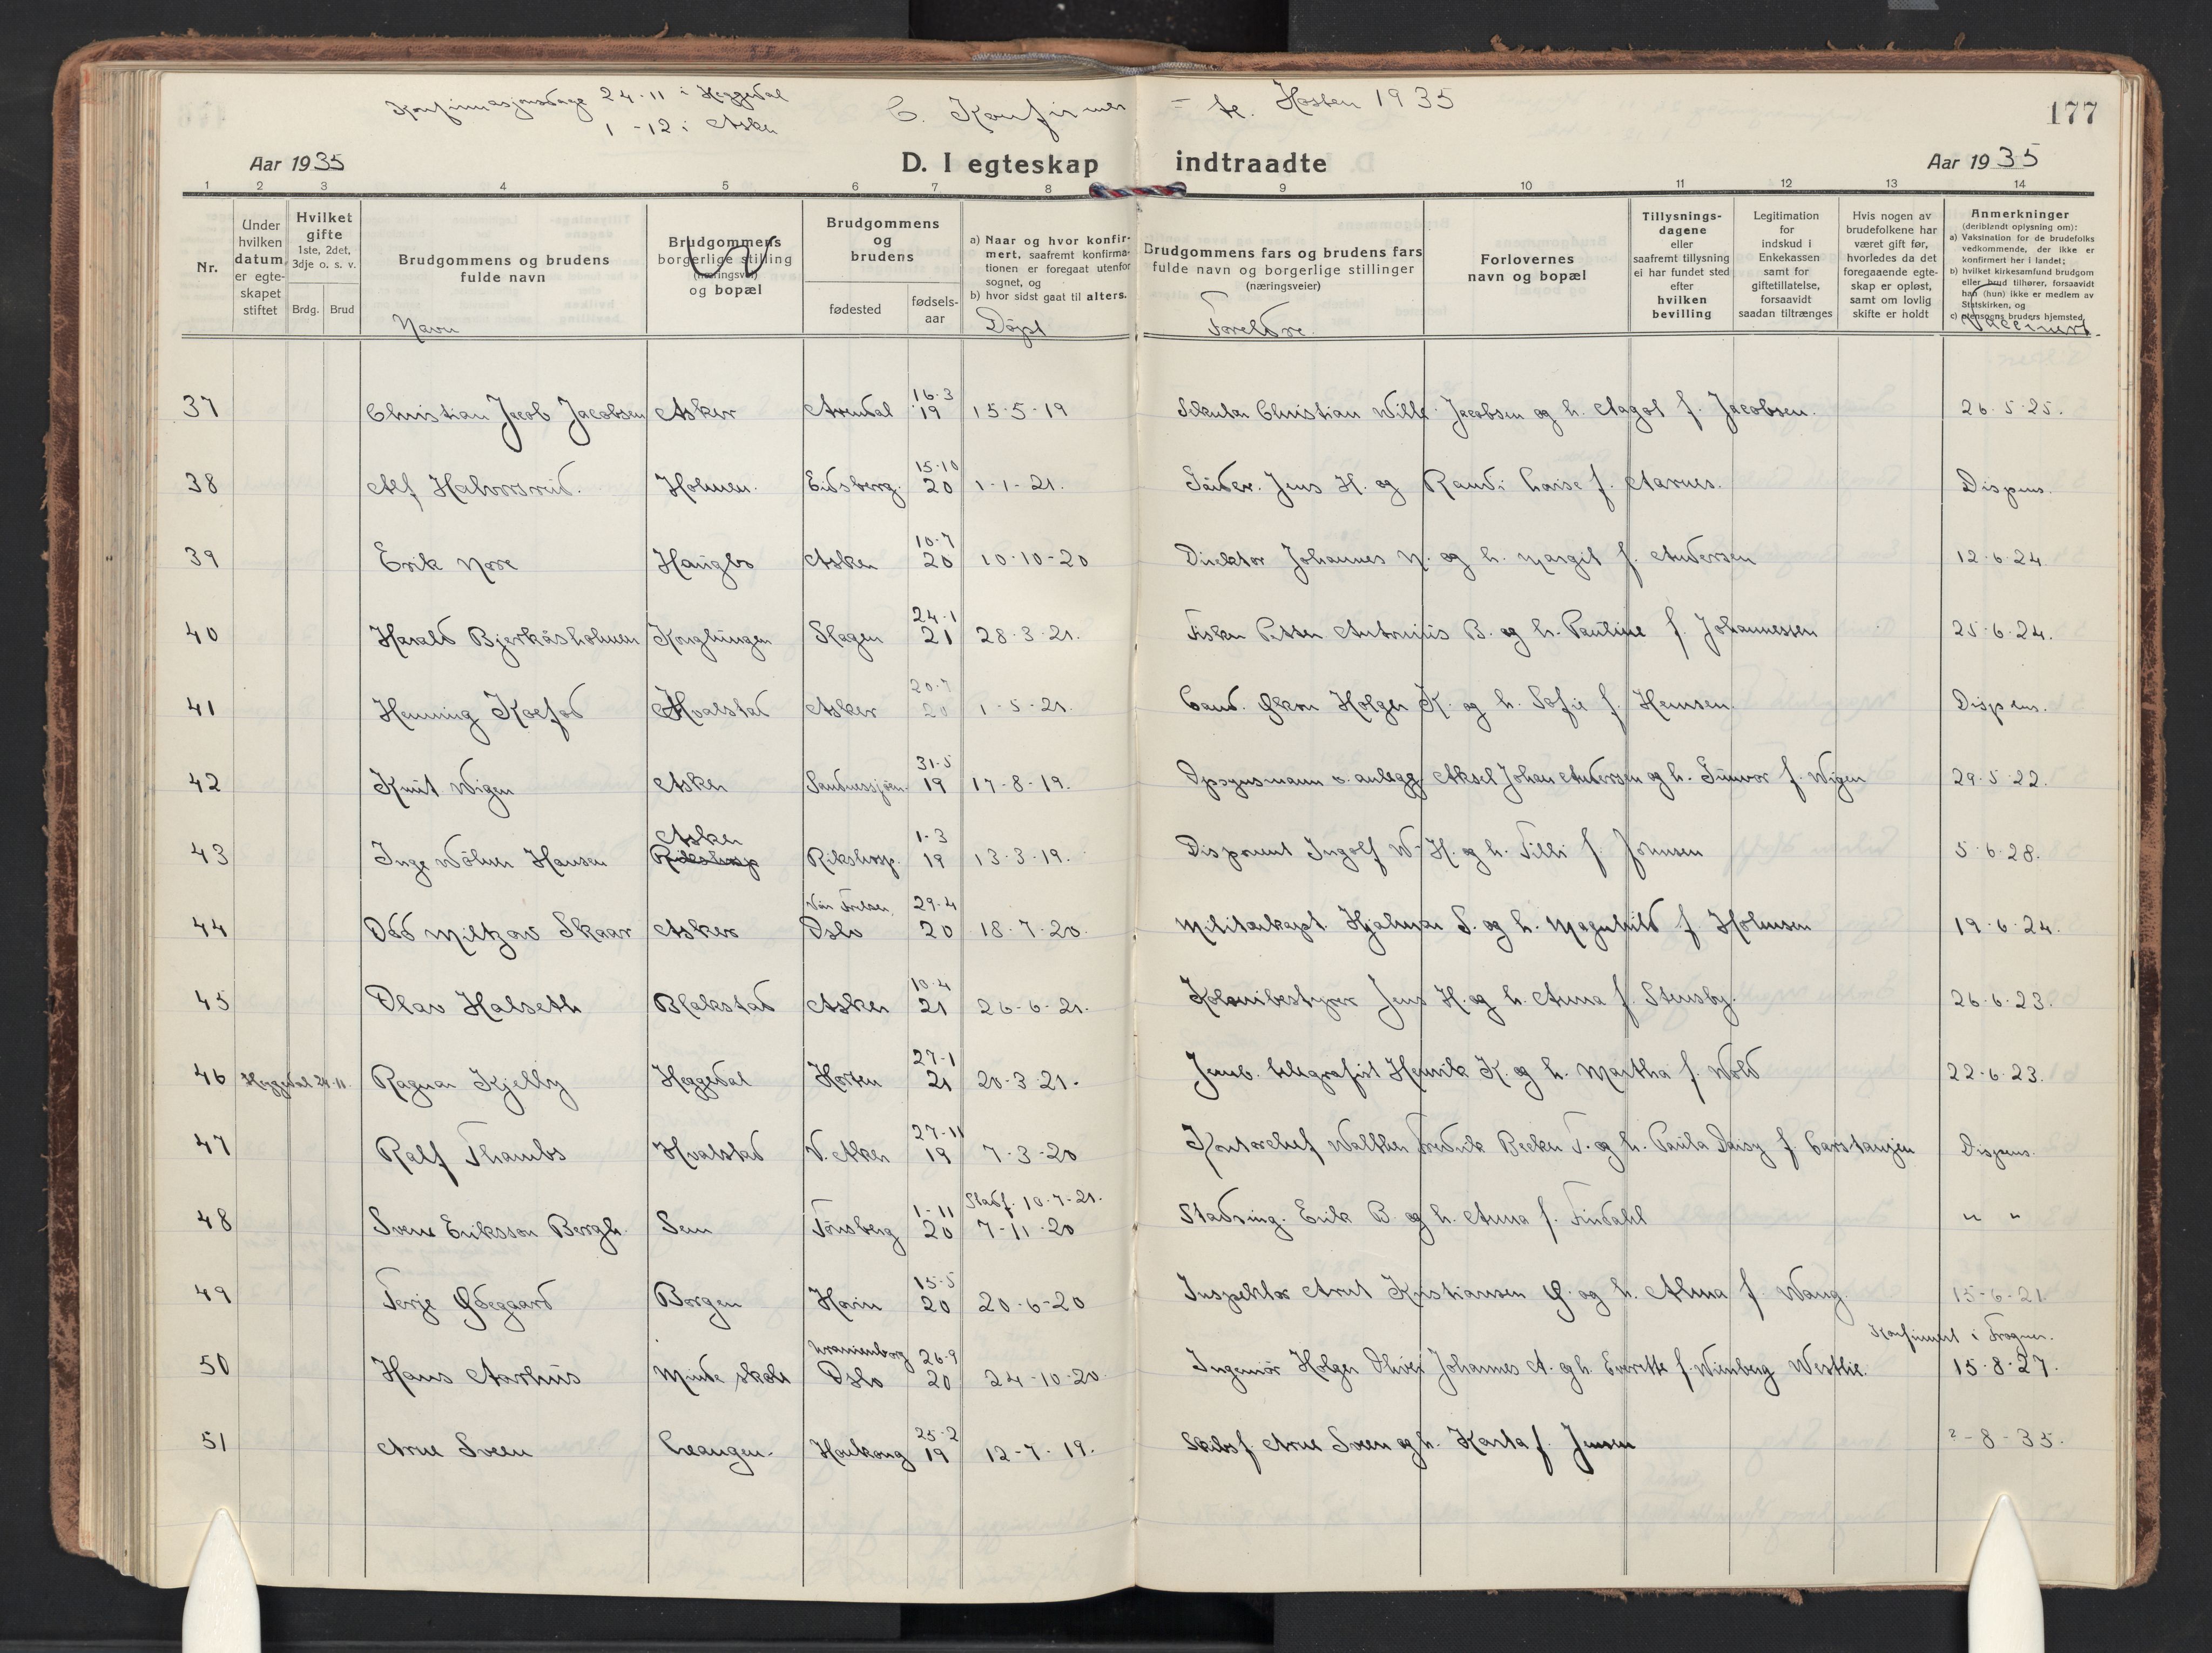 Konfirmasjonsdage 24-11 i Heggedal
1-12 i Asker
C. Konfirmer = te. Høsten 1935
177
Aar 1935
D. I egteskap indtraadte
Aar 1935
1 2 3 4 5 6 7 8 9 10 11 12 13 14
Nr.
Under hvilken datum er egteskapet stiftet
Hvilket gifte
1ste, 2det, 3dje o. s. v.
Brdg. Brud
Brudgommens og brudens fulde navn
Navn
Brudgommens borgerlige stilling (næringsvei) og bopæl
Brudgommens og brudens
fødested
fødsels-aar
a) Naar og hvor konfirmert, saafremt konfirmationen er foregaat utenfor sognet, og
b) hvor sidst gaat til alters.
Døpt
Brudgommens fars og brudens fars fulde navn og borgerlige stillinger (næringsveier)
Foreldre
Forlovernes navn og bopæl
Tillysningsdagene eller saafremt tillysning ei har fundet sted efter hvilken bevilling
Legitimation for indskud i Enkekassen samt for giftetillatelse, forsaavidt saadan tiltrænges
Hvis nogen av brudefolkene har været gift før, hvorledes da det foregaaende egteskap er opløst, samt om lovlig skifte er holdt
Anmerkninger (deriblandt oplysning om):
a) Vaksination for de brudefolks vedkommende, der ikke er konfirmert her i landet;
b) hvilket kirkesamfund brudgom eller brud tilhører, forsaavidt han (hun) ikke er medlem av Statskirken, og
c) utensogns bruders hjemsted.
37 Christian Jacob Jacobsen Asker Arendal 16-3 19 15-5-19 Christian Wilh. Jacobsen og h. Aagot f. Jacobsen. 26.5.25.
38 Alf Halvorsrud. Holmen. Eidsberg. 15-10 20 1-1-21. Jens H. og Randi Lovise f. Aarnes. Dispens.
39 Erik Nore Haugbo Asker 10-7 20 10-10-20 Direktør Johannes N. og h. Margit f. Andersen 12-6-24
40 Harald Bjerkåsholmen Konglungen Slagen 24-1 21 28-3-21. Fisker Petter Antonius B. og h. Pauline f. Johannessen 25-6-24.
41 Henning Koefod Hvalstad Asker 20-7 20 1-5-21. Cand. økon Holger K. og h. Sofie f. Hemsen Dispens.
42 Knut Wigen Asker Sandnessjøen 31-5 19 17-8-19. Opsynsmann v. anlegg Aksel Johan Andersen og h. Gunvor f. Wigen 29-5-22.
43 Inge Wølner Hansen Asker Rikshosp. 1-3 19 13-3-19. Disponent Ingolf W-H. og h. Tilli f. Johnsen 5-6-28.
44 Odd Miltzow Skaar Asker Vår Frelser, Oslo 29-4 20 18-7-20. Militærkapt. Hjalmar S. og h. Magnhild f. Holmsen 19-6-24.
45 Olav Halseth Blakstad Asker 10-4 21 26-6-21. Kolonibestyrer Jens H. og h. Anna f. Stensby. 26-6-23.
46 Heggedal 24-11. Ragnar Kjelby Heggedal Horten 27-1 21 20-3-21. Jernb. telegrafist Henrik K. og h. Martha f. Wold 22-6-23.
47 Ralf Thambs Hvalstad V. Aker 27-11 19 7-3-20 Kontorchef Walther Fredrik Becker T. og h. Paula Daisy f. Carstanjen Dispens.
48 Svend Eriksson Bergh. Sem Tønsberg 1-11 20 Stadf. 10-7-21. 7-11-20 Stadsing. Erik B. og h. Anna f. Findahl " "
49 Terje Ødegaard Borgen Hovin 15-5 20 20-6-20 Inspektør Arnt Kristiansen Ø. og h. Alma f. Wang. 15-6-21
50 Hans Aarhus Minde skole Uranienborg Oslo 26-9 20 24-10-20. Ingeniør Holger Oliver Johannes A. og h. f. Wienberg Westlie. Konfirmert i Frogner. 15-8-27.
51 Arne Sveen Leangen. Honkong 25-2 19 12-7-19. Skibsf. Arne Sveen og h. Karla f. Jensen ?-8-35.